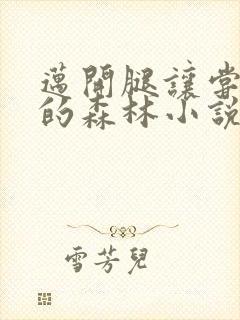 邁開腿讓嘗
的森林小説
雪芳兒